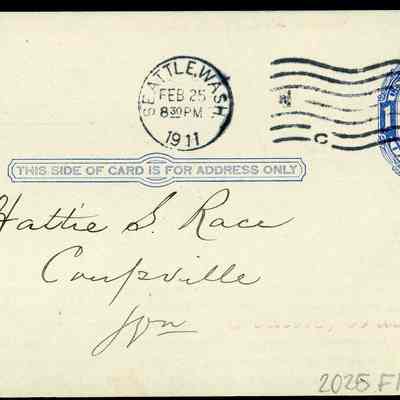 SEATTLE, WASH.
FEB 25
8 30 PM
1911
C
1
THIS SIDE OF CARD IS FOR ADDRESS ONLY
Hattie S. Race
Coupville
2025 F